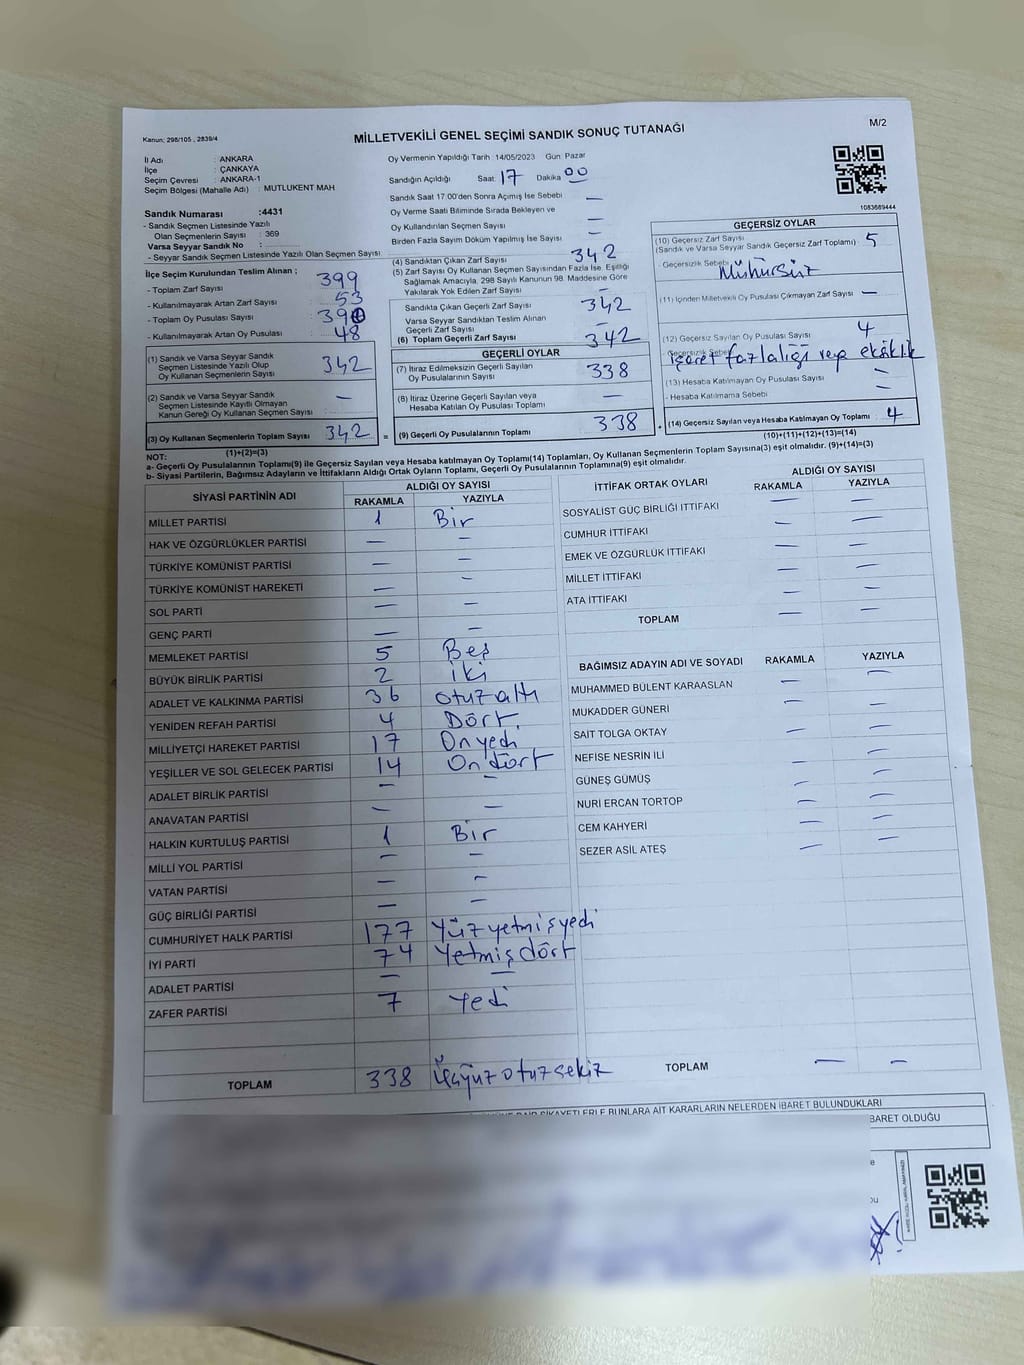 Kanun: 298/105 , 2839/4
MİLLETVEKİLİ GENEL SEÇİMİ SANDIK SONUÇ TUTANAĞI
M/2
İl Adı : ANKARA
İlçe : ÇANKAYA
Seçim Çevresi : ANKARA-1
Seçim Bölgesi (Mahalle Adı) : MUTLUKENT MAH
Sandık Numarası :4431
- Sandık Seçmen Listesinde Yazılı
Olan Seçmenlerin Sayısı : 369
Varsa Seyyar Sandık No :
- Seyyar Sandık Seçmen Listesinde Yazılı Olan Seçmen Sayısı
İlçe Seçim Kurulundan Teslim Alınan ;
- Toplam Zarf Sayısı : 399
- Kullanılmayarak Artan Zarf Sayısı : 53
- Toplam Oy Pusulası Sayısı : 390
- Kullanılmayarak Artan Oy Pusulası : 48
(1) Sandık ve Varsa Seyyar Sandık
Seçmen Listesinde Yazılı Olup
Oy Kullanan Seçmenlerin Sayısı : 342
(2) Sandık ve Varsa Seyyar Sandık
Seçmen Listesinde Kayıtlı Olmayan
Kanun Gereği Oy Kullanan Seçmen Sayısı : —
(3) Oy Kullanan Seçmenlerin Toplam Sayısı : 342
(1)+(2)=(3)
Oy Vermenin Yapıldığı Tarih 14/05/2023 Gün: Pazar
Sandığın Açıldığı Saat: 17 Dakika 00
Sandık Saat 17.00'den Sonra Açımış İse Sebebi —
Oy Verme Saati Bitiminde Sırada Bekleyen ve
Oy Kullandırılan Seçmen Sayısı —
Birden Fazla Sayım Döküm Yapılmış İse Sayısı —
(4) Sandıktan Çıkan Zarf Sayısı 342
(5) Zarf Sayısı Oy Kullanan Seçmen Sayısından Fazla İse, Eşitliği
Sağlamak Amacıyla, 298 Sayılı Kanunun 98. Maddesine Göre
Yakılarak Yok Edilen Zarf Sayısı —
Sandıkta Çıkan Geçerli Zarf Sayısı 342
Varsa Seyyar Sandıktan Teslim Alınan
Geçerli Zarf Sayısı —
(6) Toplam Geçerli Zarf Sayısı 342
GEÇERLİ OYLAR
(7) İtiraz Edilmeksizin Geçerli Sayılan
Oy Pusulalarının Sayısı 338
(8) İtiraz Üzerine Geçerli Sayılan veya
Hesaba Katılan Oy Pusulası Toplamı —
= (9) Geçerli Oy Pusulalarının Toplamı 338
1083689444
GEÇERSİZ OYLAR
(10) Geçersiz Zarf Sayısı
(Sandık ve Varsa Seyyar Sandık Geçersiz Zarf Toplamı) 5
- Geçersizlik Sebebi Mühürsüz
(11) İçinden Milletvekili Oy Pusulası Çıkmayan Zarf Sayısı —
(12) Geçersiz Sayılan Oy Pusulası Sayısı 4
Geçersizlik Sebebi işaret fazlalığı veya eksiklik
(13) Hesaba Katılmayan Oy Pusulası Sayısı —
- Hesaba Katılmama Sebebi —
(14) Geçersiz Sayılan veya Hesaba Katılmayan Oy Toplamı 4
(10)+(11)+(12)+(13)=(14)
NOT:
a- Geçerli Oy Pusulalarının Toplamı(9) ile Geçersiz Sayılan veya Hesaba Katılmayan Oy Toplamı(14) Toplamları, Oy Kullanan Seçmenlerin Toplam Sayısına(3) eşit olmalıdır. (9)+(14)=(3)
b- Siyasi Partilerin, Bağımsız Adayların ve İttifakların Aldığı Ortak Oyların Toplamı, Geçerli Oy Pusulalarının Toplamına(9) eşit olmalıdır.
SİYASİ PARTİNİN ADI ALDIĞI OY SAYISI
RAKAMLA YAZIYLA
MİLLET PARTİSİ 1 Bir
HAK VE ÖZGÜRLÜKLER PARTİSİ — —
TÜRKİYE KOMÜNİST PARTİSİ — —
TÜRKİYE KOMÜNİST HAREKETİ — —
SOL PARTİ — —
GENÇ PARTİ — —
MEMLEKET PARTİSİ 5 Beş
BÜYÜK BİRLİK PARTİSİ 2 iki
ADALET VE KALKINMA PARTİSİ 36 otuzaltı
YENİDEN REFAH PARTİSİ 4 Dört
MİLLİYETÇİ HAREKET PARTİSİ 17 Onyedi
YEŞİLLER VE SOL GELECEK PARTİSİ 14 Ondört
ADALET BİRLİK PARTİSİ — —
ANAVATAN PARTİSİ — —
HALKIN KURTULUŞ PARTİSİ 1 Bir
MİLLİ YOL PARTİSİ — —
VATAN PARTİSİ — —
GÜÇ BİRLİĞİ PARTİSİ — —
CUMHURİYET HALK PARTİSİ 177 Yüzyetmişyedi
İYİ PARTİ 74 Yetmişdört
ADALET PARTİSİ — —
ZAFER PARTİSİ 7 Yedi
TOPLAM 338 Üçyüzotuzsekiz
İTTİFAK ORTAK OYLARI ALDIĞI OY SAYISI
RAKAMLA YAZIYLA
SOSYALİST GÜÇ BİRLİĞİ İTTİFAKI — —
CUMHUR İTTİFAKI — —
EMEK VE ÖZGÜRLÜK İTTİFAKI — —
MİLLET İTTİFAKI — —
ATA İTTİFAKI — —
TOPLAM — —
BAĞIMSIZ ADAYIN ADI VE SOYADI RAKAMLA YAZIYLA
MUHAMMED BÜLENT KARAASLAN — —
MUKADDER GÜNERİ — —
SAİT TOLGA OKTAY — —
NEFİSE NESRİN İLİ — —
GÜNEŞ GÜMÜŞ — —
NURİ ERCAN TORTOP — —
CEM KAHYERİ — —
SEZER ASİL ATEŞ — —
TOPLAM — —
ŞİKAYETLERLE BUNLARA AİT KARARLARIN NELERDEN İBARET BULUNDUKLARI
BARET OLDUĞU